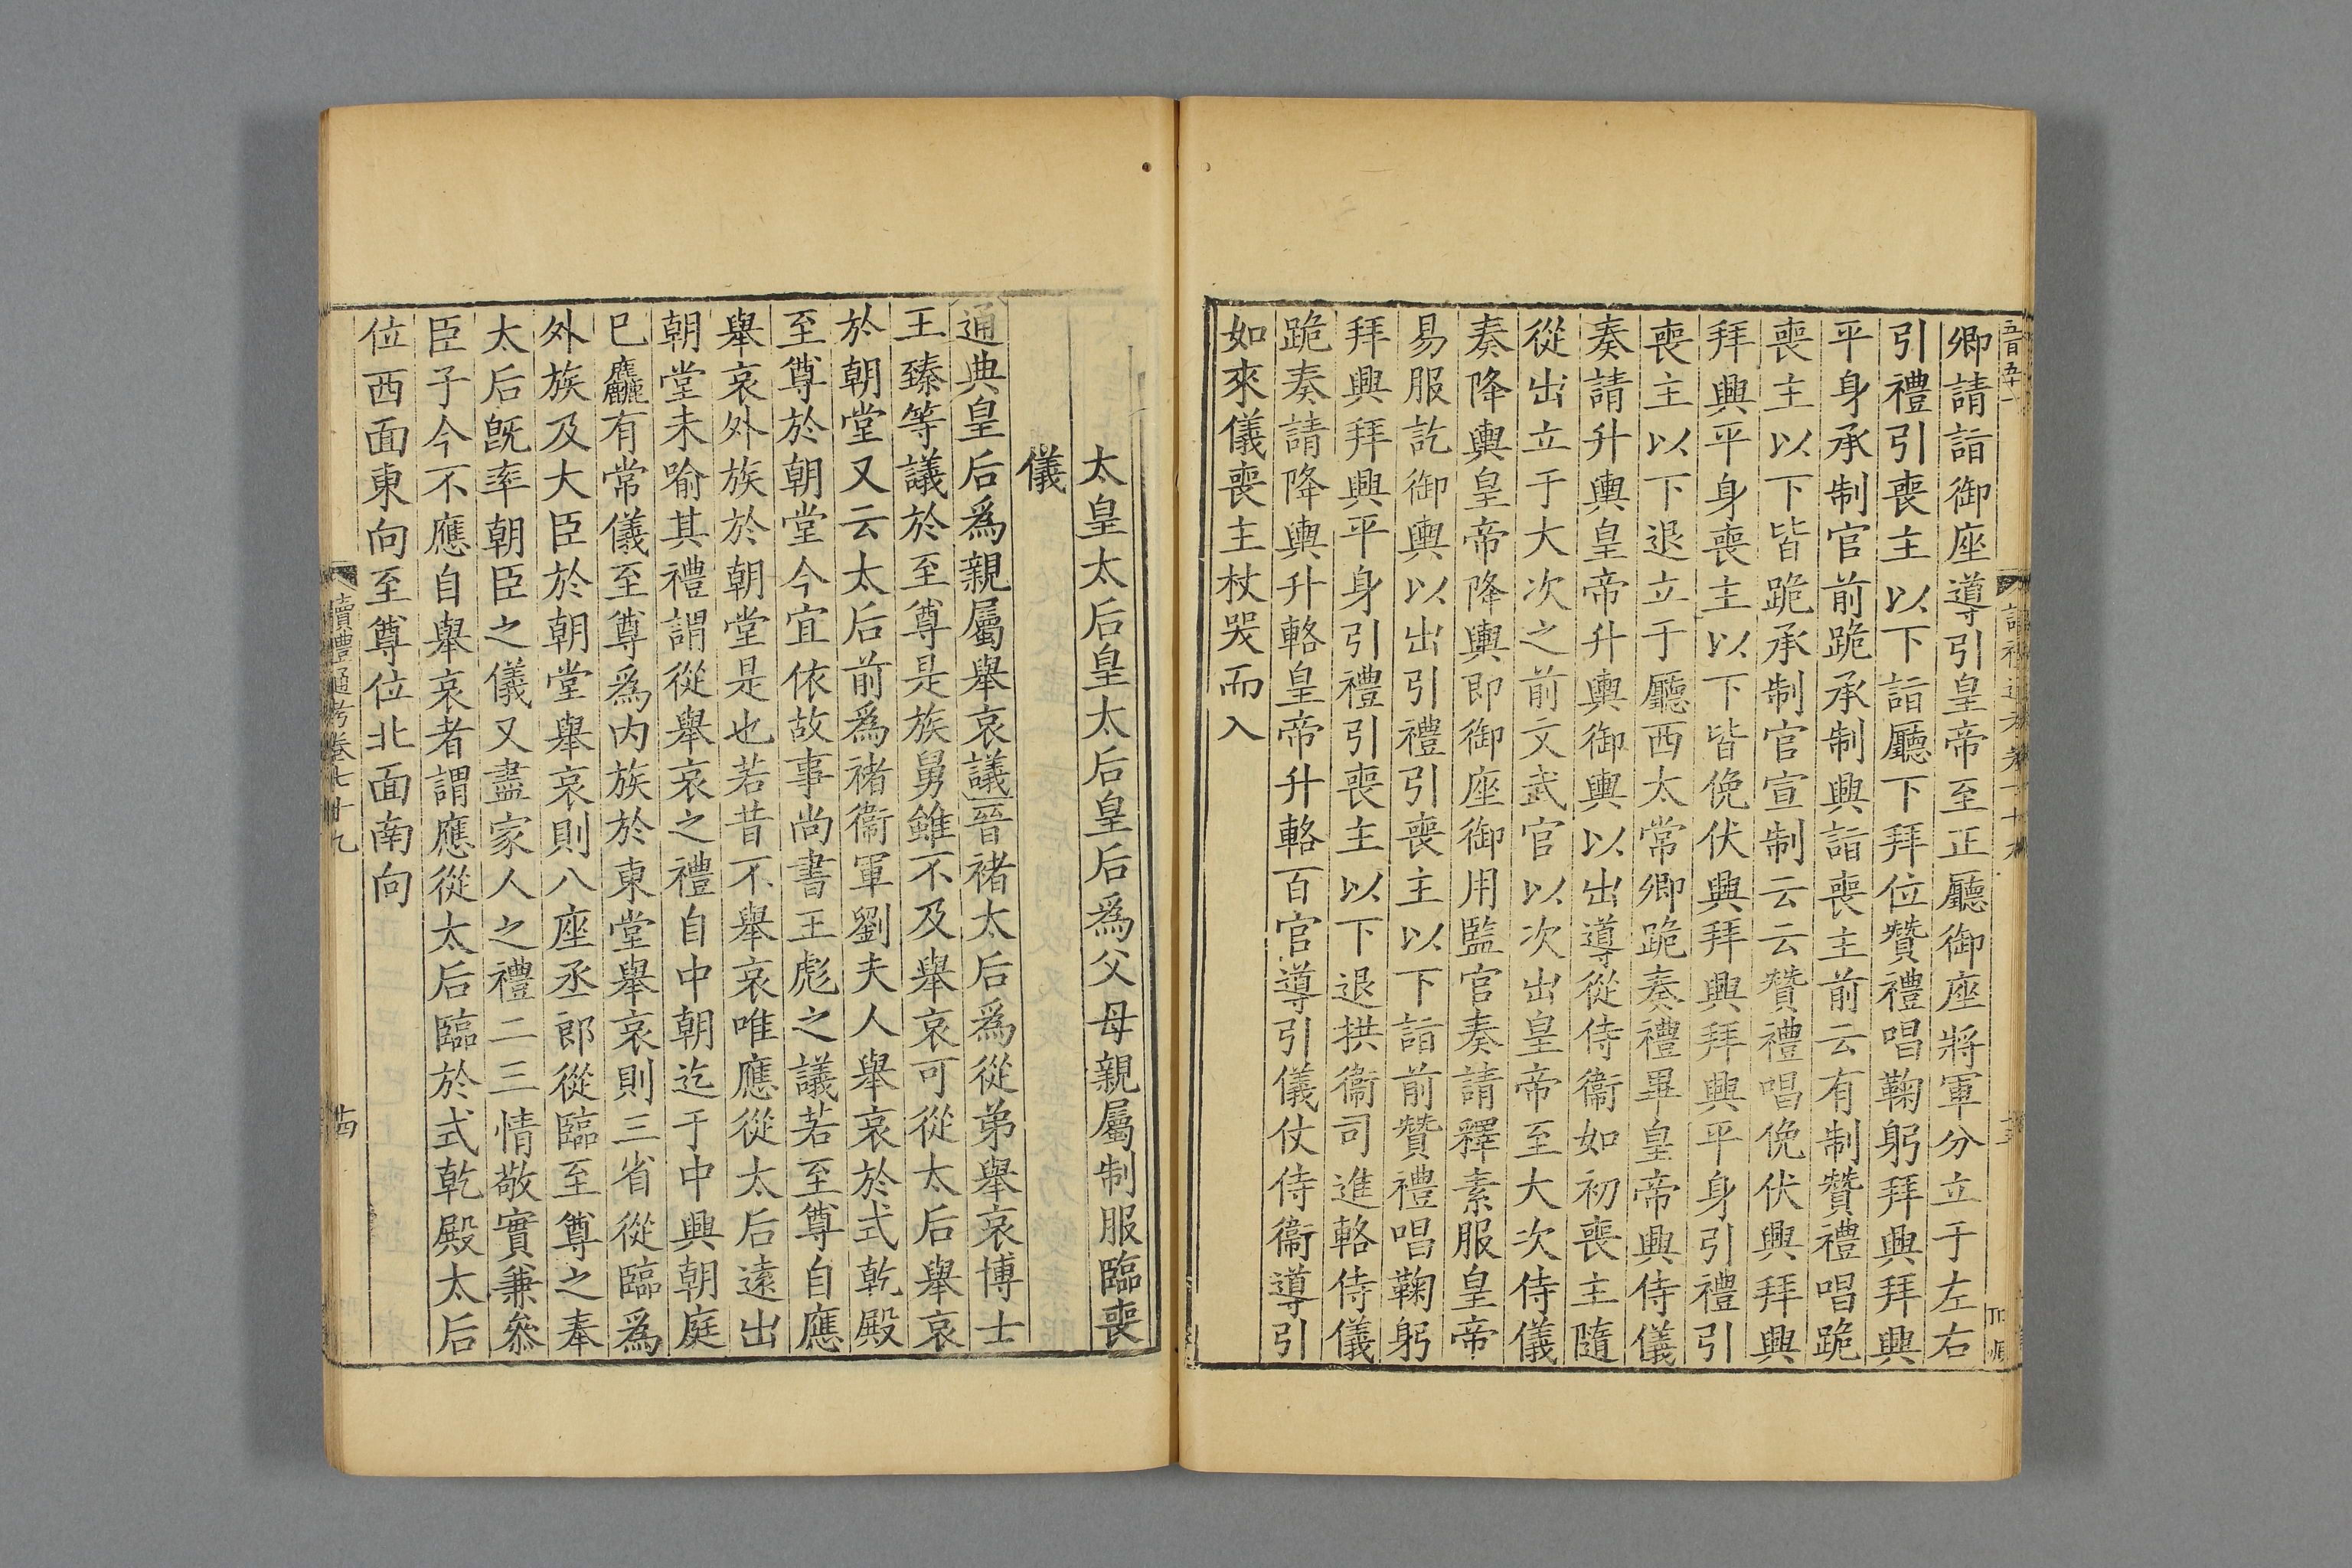 五百五十一
卿請詣御座導引皇帝至正廳御座將軍分立于左右
引禮引喪主以下詣廳下拜位贊禮唱鞠躬拜興拜興
平身承制官前跪承制興詣喪主前云有制贊禮唱跪
喪主以下皆跪承制官宣制云云贊禮唱俛伏興拜興
拜興平身喪主以下皆俛伏興拜興拜興平身引禮引
喪主以下退立于廳西太常卿跪奏禮畢皇帝興侍儀
奏請升輿皇帝升輿御輿以出導從侍衞如初喪主隨
從出立于大次之前文武官以次出皇帝至大次侍儀
奏降輿皇帝降輿即御座御用監官奏請釋素服皇帝
易服訖御輿以出引禮引喪主以下詣前贊禮唱鞠躬
拜興拜興平身引禮引喪主以下退拱衞司進輅侍儀
跪奏請降輿升輅皇帝升輅百官導引儀仗侍衞導引
如來儀喪主杖哭而入
太皇太后皇太后皇后爲父母親屬制服臨喪
儀
通典皇后爲親屬舉哀議晉褚太后爲從弟舉哀博士
王臻等議於至尊是族舅雖不及舉哀可從太后舉哀
於朝堂又云太后前爲褚衞軍劉夫人舉哀於式乾殿
至尊於朝堂今宜依故事尚書王彪之議若至尊自應
舉哀外族於朝堂是也若昔不舉哀唯應從太后遠出
朝堂未喻其禮謂從舉哀之禮自中朝迄于中興朝庭
已麤有常儀至尊爲内族於東堂舉哀則三省從臨爲
外族及大臣於朝堂舉哀則八座丞郎從臨至尊之奉
太后旣率朝臣之儀又盡家人之禮二三情敬實兼叅
臣子今不應自舉哀者謂應從太后臨於式乾殿太后
位西面東向至尊位北面南向
讀禮通考卷七十九
廿四